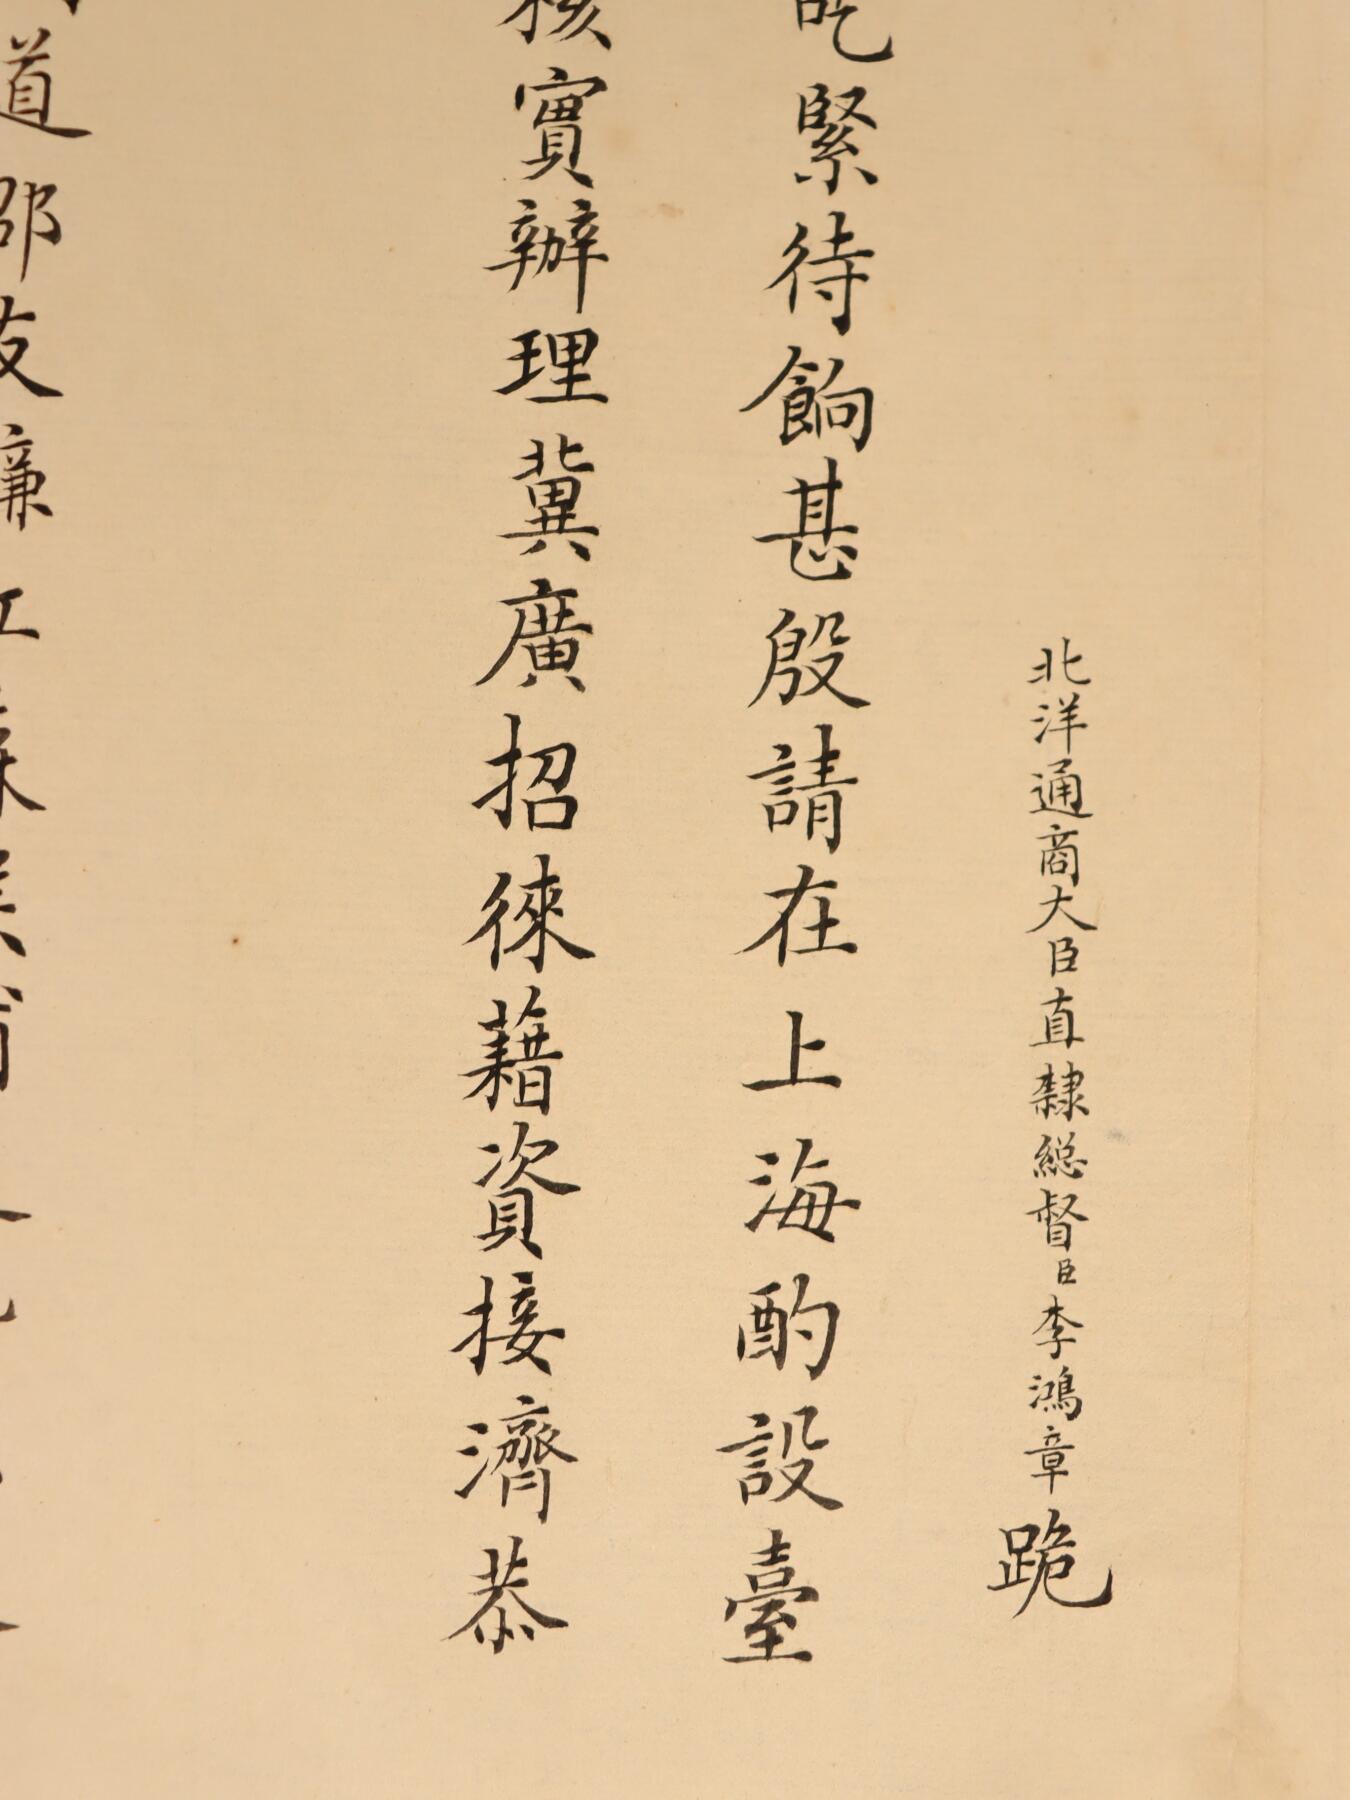 北洋通商大臣直隸總督臣李鴻章跪
吃緊待餉甚殷請在上海酌設臺
核實辦理冀廣招徠藉資接濟恭
道邵友濂江蘇候補